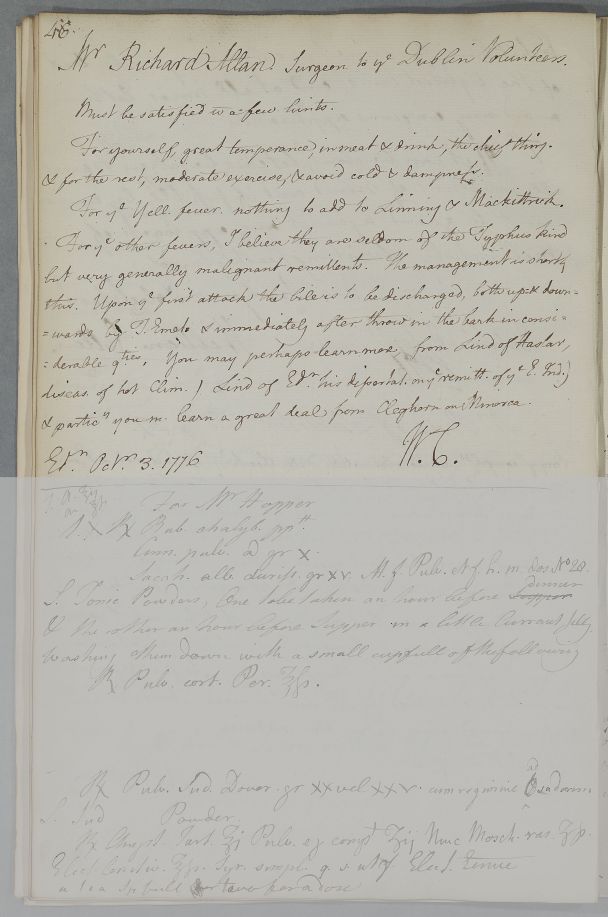 46.
Mr Richard Allan. Surgeon to ye Dublin Volunteers.
Must be satisfied w a few hints.
For yourself, great temperance, in meat & drink, the chief thing.
& for the rest, moderate exercise, & avoid cold & dampness.
For ye Yell. fever. nothing to add to Linning & Mackittrick.
For ye other fevers, I believe they are seldom of the Typhus kind
but very generally malignant remittents. The management is shortly
this. Upon ye first attack the bile is to be discharged, both up- & down-
=wards by T. Emet. & immediately after throw in the bark in consi-
=derable qties. You may perhaps learn more from Lind of Haslar,
diseas. of hot Clim. / Lind of Edr. his dissertat. on ye remitt. of ye E. Ind.)
& particly you m. learn a great deal from Cleghorn on Minorca.
Edn. Octr. 3. 1776 W. C.
For Mr Hopper
1. X ℞ Rub. chalyb. ppt.
Cinn. pulv. a gr X.
Sacch. alb. duriss. gr XV. M. f. Pulv. N. f. h. m. dos No 28.
dinner
S. Tonic Powders, One to be taken an hour before supper
& the other an hour before supper in a little Currant Jelly
washing them down with a small cupfull of the following
℞ Pulv. cort. Per. ℥ſs.
℞ Pulv. Sud. Dover. gr XX vel XXV. cum regimine ad sudorem
S. Sud Powder.
℞ Chryst. Tart. ℥j Pulv. e compt ʒij Nuc Mosch. ras. ʒſs.
Elect. lenitiv. ℥ſs. Syr. simpl. q. s. ut f. Elect. tenue
a tea spfull or two for a dose